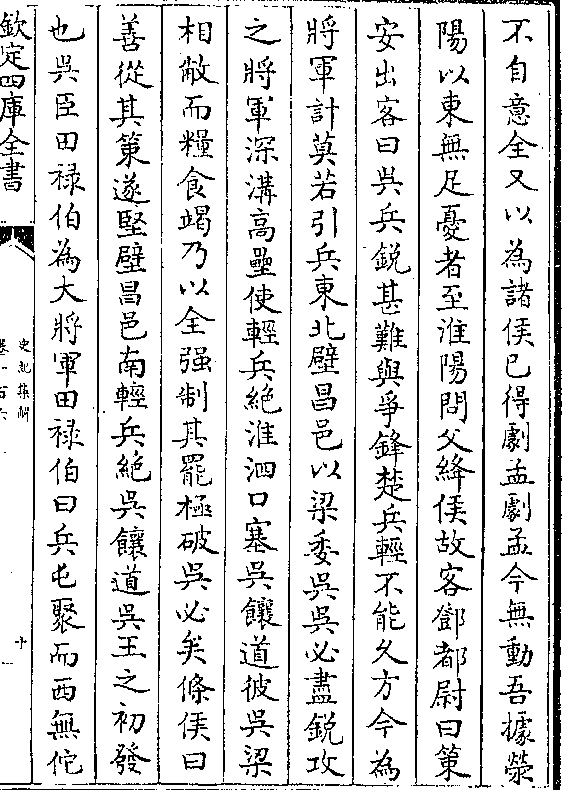 不自意全又以為諸侯已得劇孟劇孟今無動吾據滎
陽以東無足憂者至淮陽問父絳侯故客鄧都尉曰策
安出客曰吳兵銳甚難與爭鋒楚兵輕不能久方今為
將軍計莫若引兵東北壁昌邑以梁委吳吳必盡銳攻
之將軍深溝高壘使輕兵絕淮泗口塞吳饟道彼吳梁
相敝而糧食竭乃以全强制其罷極破吳必矣條侯曰
善從其策遂堅壁昌邑南輕兵絕吳饟道吳王之初發
也吳臣田禄伯為大將軍田禄伯曰兵屯聚而西無佗
欽定四庫全書